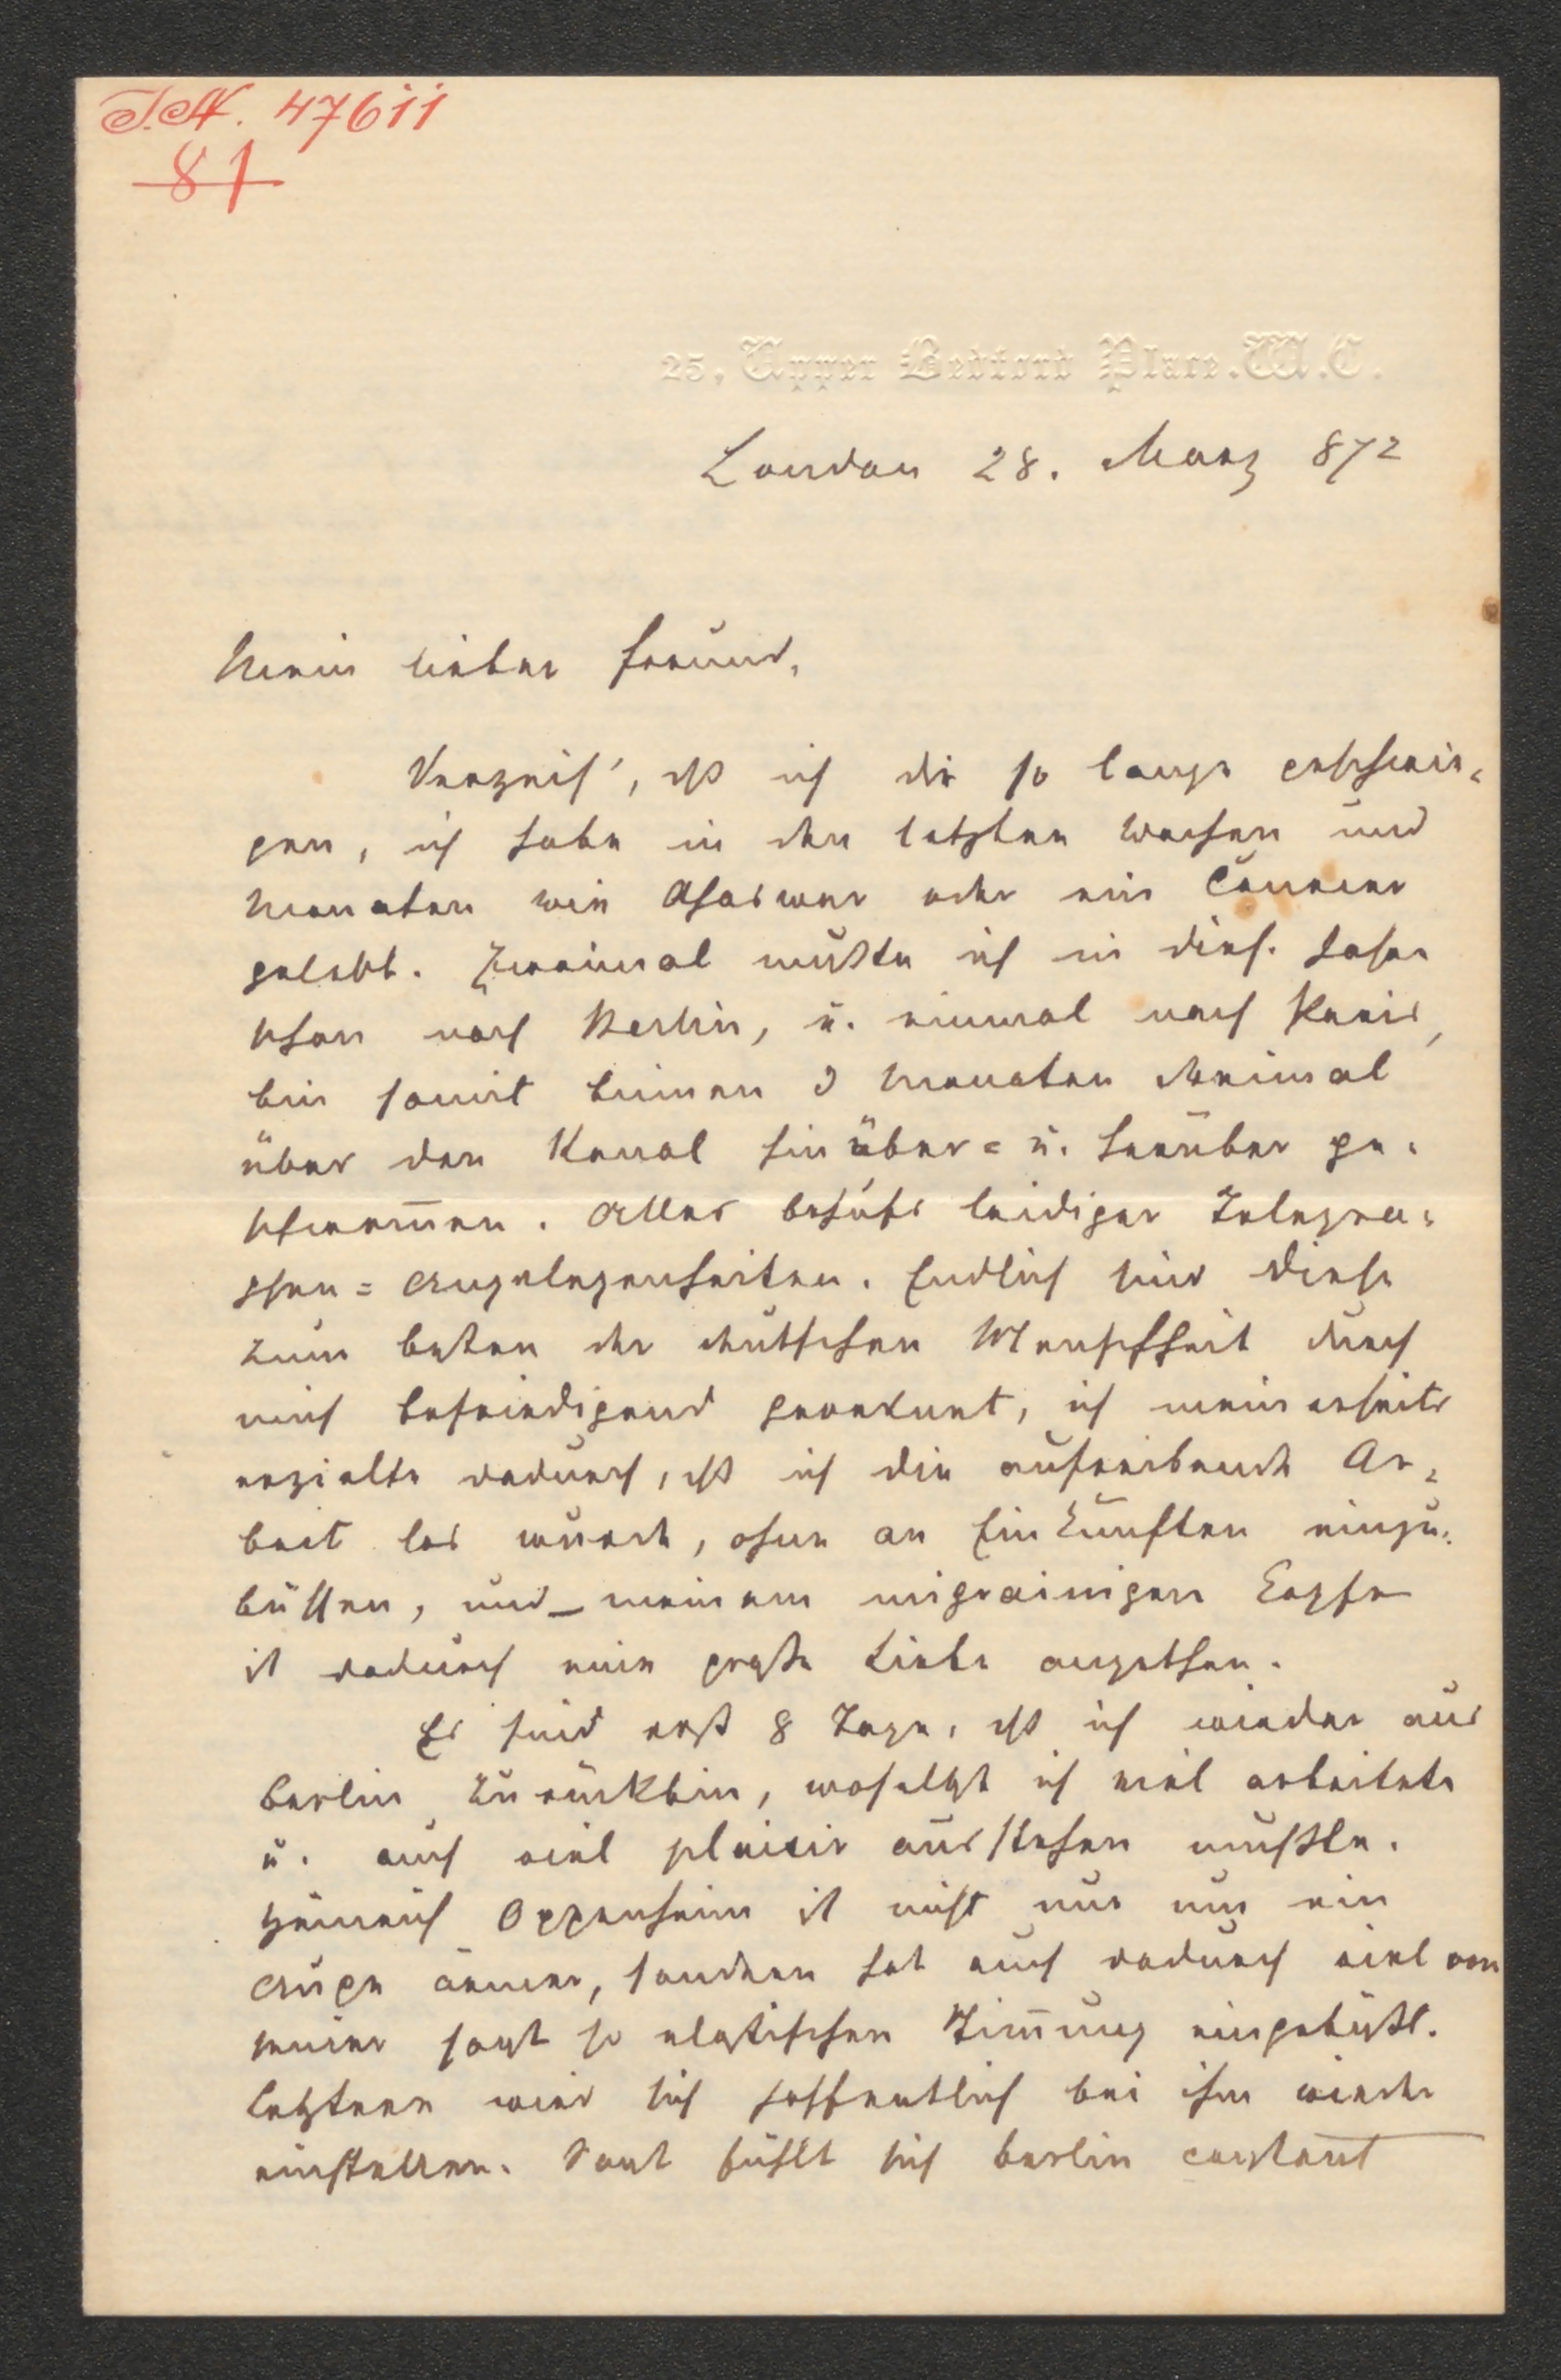 I.N. 47611
81
25, Upper Bedford Place. W.C.
London 28. März 872
Mein lieber Freund,
Verzeih', daß ich dir so lange geschwie=
gen, ich habe in den letzten Wochen und
Monaten wie Ahasver oder ein Courier
gelebt. Zweimal mußte ich in dies. Jahre
schon nach Berlin, u. einmal nach Paris,
bin somit binnen 3 Monaten dreimal
über den Kanal hinüber= u. herüber ge=
schwommen. Alles behufs leidiger Telegra=
phen=Angelegenheiten. Endlich sind diese
zum besten der deutschen Menschheit durch
mich befriedigend geordnet, ich meinerseits
erzielte dadurch, daß ich die aufreibende Ar=
beit los wurde, ohne an Einkünften einzu=
büßen, und meinem migrainigen Kopfe
ist dadurch eine große Liebe angethan.
Es sind erst 8 Tage, daß ich wieder aus
Berlin zurückbin, woselbst ich viel arbeitete
u. auch viel plaisir ausstehen mußte.
Heinrich Oppenheim ist nicht nur um ein
Auge ärmer, sondern hat auch dadurch viel von
seiner sonst so elastischen Stimmung eingebüßt.
Letztere wird sich hoffentlich bei ihm wieder
einstellen. Sonst fühlt sich Berlin constant